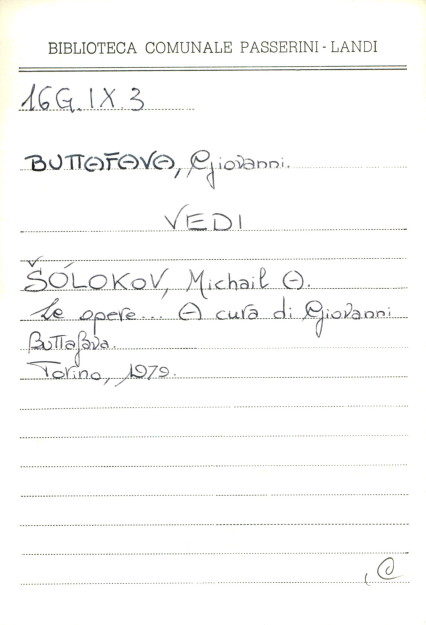 BIBLIOTECA COMUNALE PASSERINI - LANDI
16G.IX.3
BUTTAFAVA, Giovanni.
VEDI
ŠÓLOKOV, Michail A.
Le opere... A cura di Giovanni
Buttafava.
Torino, 1979.